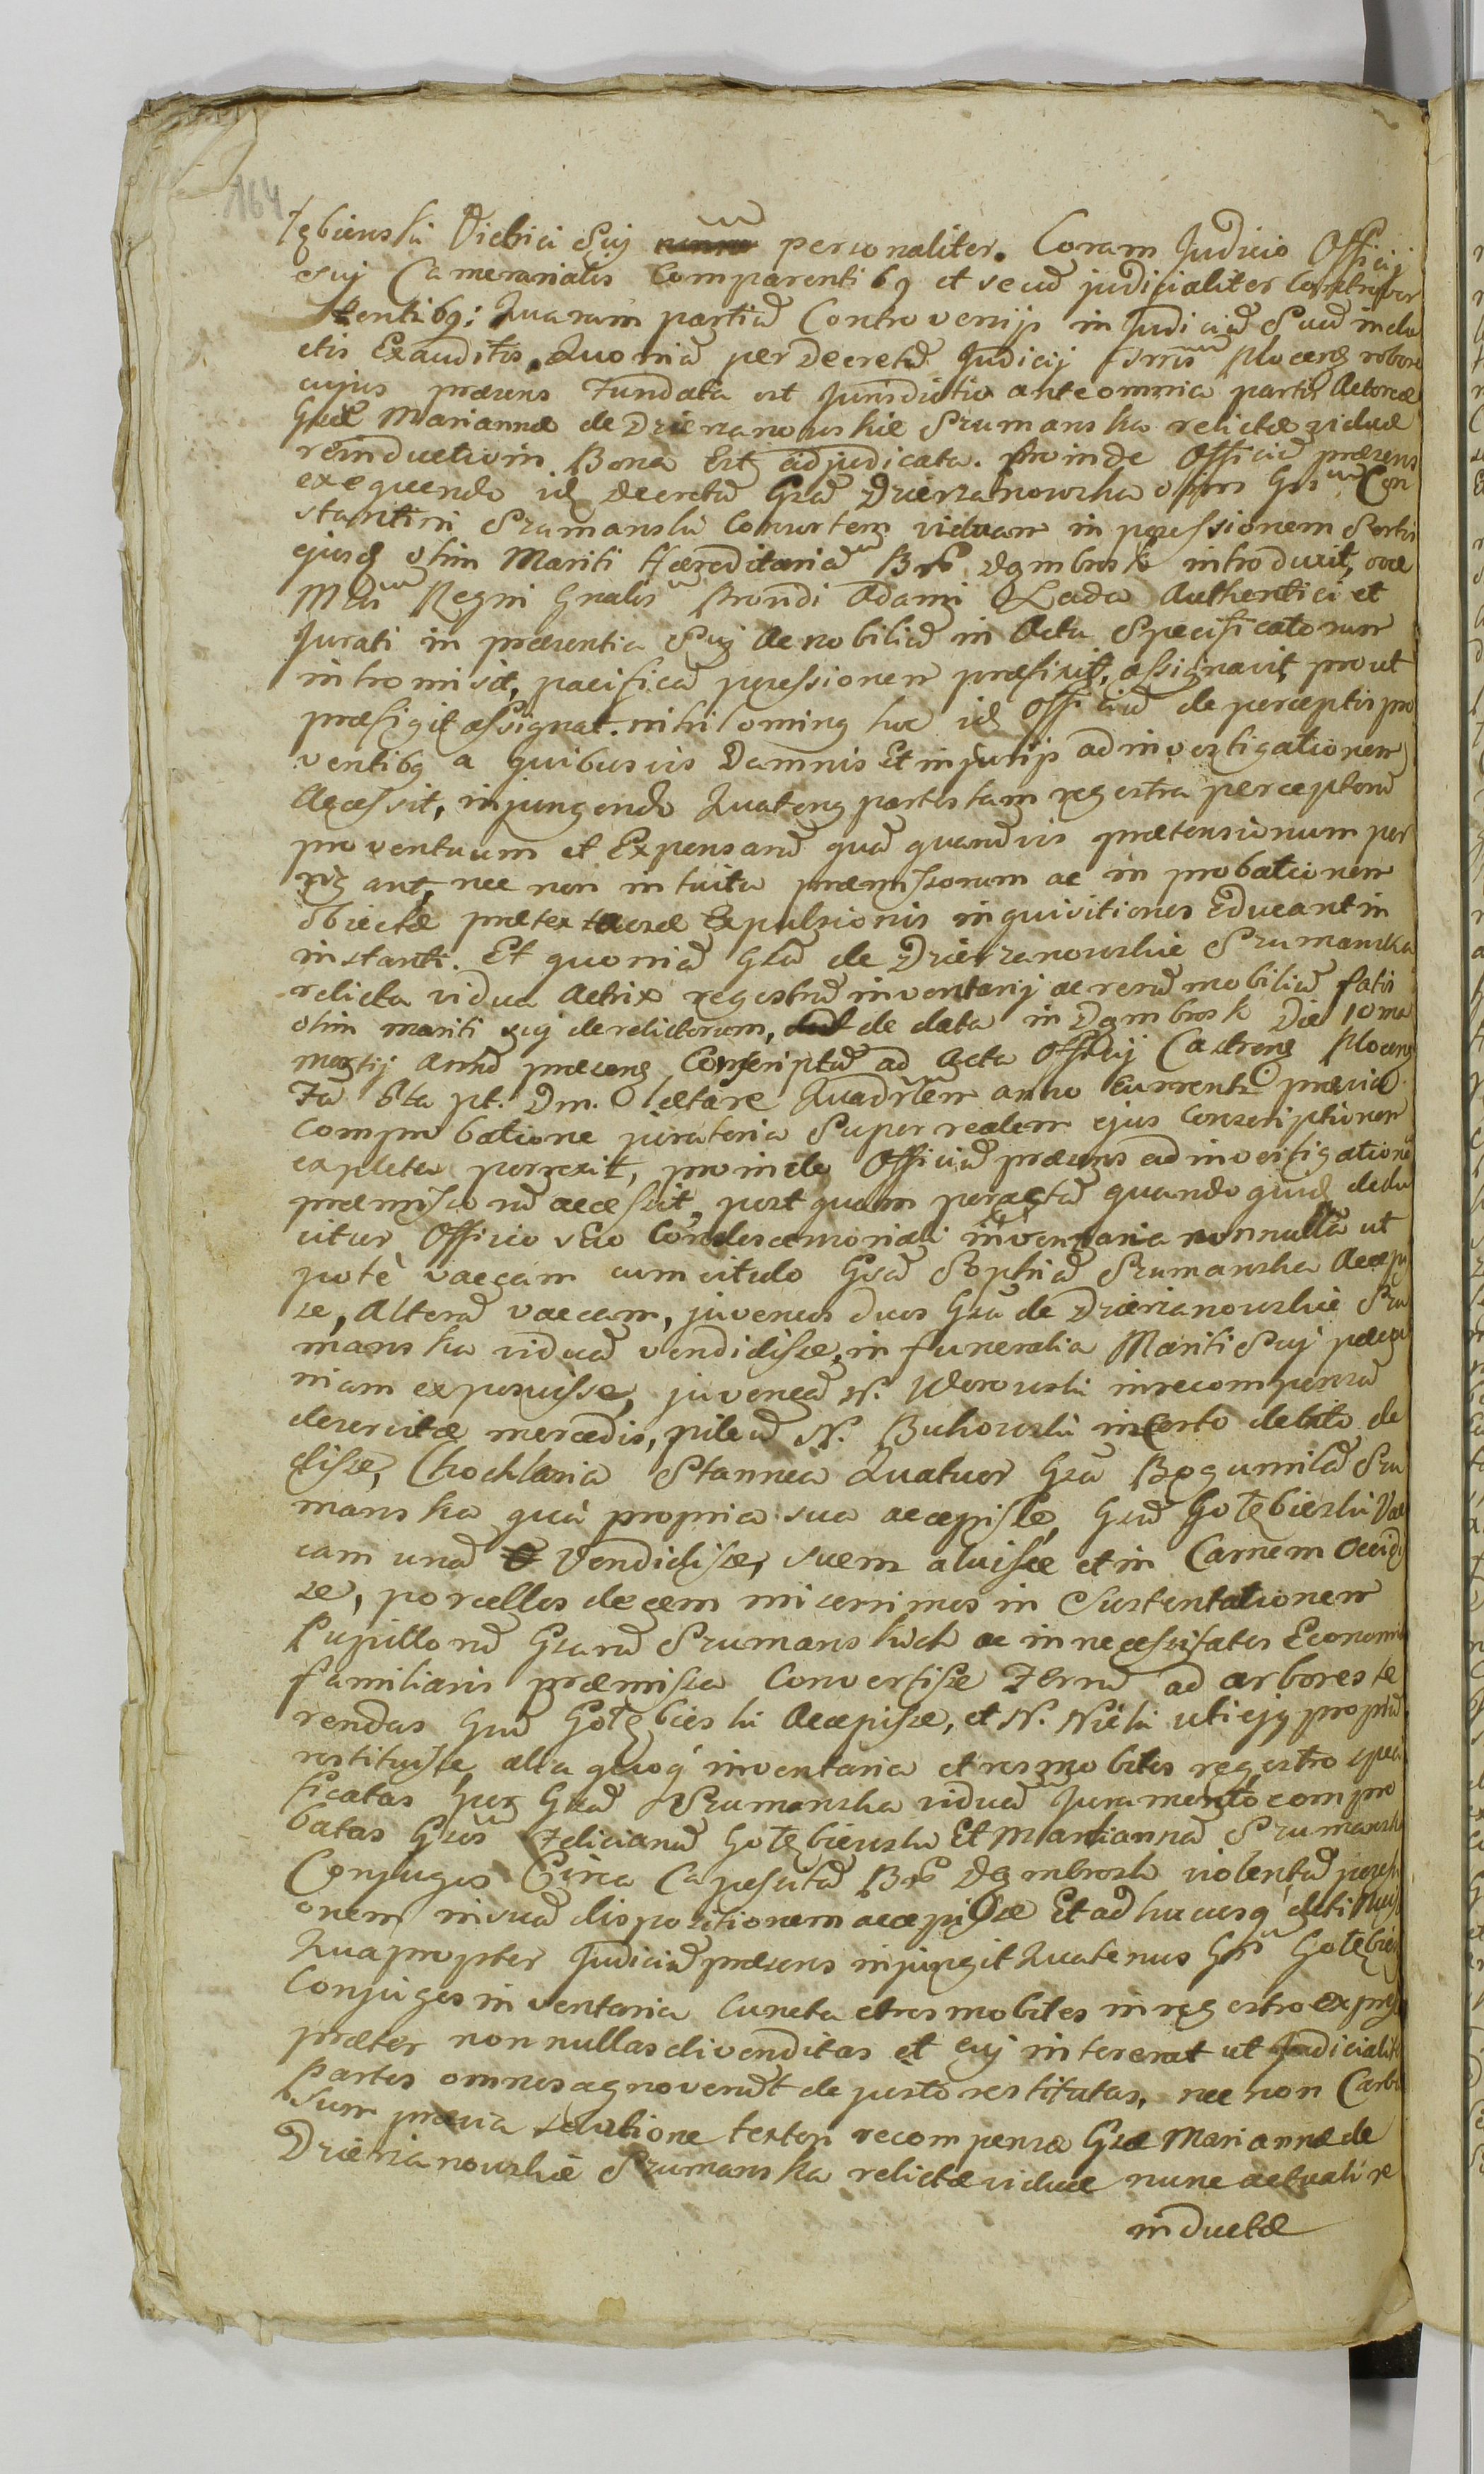 164
łębierski Victrici Suj personaliter. Coram Judicio Officij
suj Camerarialis Comparentibg et secũ judicialiter Controver
tentibg: Quarum partiũ Controversijs in Judiciũ Suũ indu
ctis Exauditis, Quoniã per Decretũ Judicij Plocens robore
cujus præsens Fundata est Jurisdictio ante omnia parti Actoreæ
Gsæ Mariannæ de Dzierzanowskie Szumanska relictæ viduæ
reinductio in Bona Est adjudicata. Proinde Officiũ præsens
exequendo id Decretũ Gsã Dzierzanowska olim Gsi Con
stantini Szumanski Consortem viduam in possessionem Sortis
ejusd olim Mariti Hæreditariã Dąmbrosk introduxit, ope
Mrlis Regni Gnalis Providi Adami Łada Authentici et
Jurati in præsentia Suj Ac nobiliũ in Actu Specificatorum
intromisit, pacificã possessionem præfixit, assignavit, prout
præfigit assignat. nihiloming hoc id Officiũ de perceptis pro
ventibg a quibusvis Damnis Et injurijs ad investigationem
Accessit, injungendo Quateng partes tam regestra perceptorũ
proventuum et Expensarũ quã quarũvis prætensionum por
rigant, nec non intuitu præmissorum ac in probationem
obiectæ prætextuosæ Expulsionis inquisitiones Educant in
instanti. Et quoniã Gsã de Dzierzanowskie Szumanska
relicta vidua Actrix regestrũ inventarij ac rerũ mobiliũ fatis
olim mariti suj derelictorum, de data in Dąmbrosk Die 10ma
martij Annũ præsens Conscriptũ ad Acta Officij Castrens Plocens
Fã 6ta pt. Dm. Lætare Quadrlem anno Currenti prævia
Comprobatione juratoria Super realem ejus Conscriptionem
expleta porrexit, proinde Officiũ præsens ad investigationẽ
præmissorũ accessit, post quam peractã quandoquid dedu
citur Officio suo Condescensoriali inventaria nonnulla ut
pote vaccam cum vitulo Gsã Sophiã Szumanska Accepis
se, Alterã vaccam, juvencos duos Gsã de Dzierzanowskie Szu
manska viduã vendidisse, in funeralia Mariti Suj pecu
niam exposuisse, juvencã N. in recompensã
deservitæ mercedis, pileũ N. Bukowski in Certo debito de
disse, Chochlaria Stannea Quatuor Gsã Bogumilã Szu
manska quà propria sua accepisse, Gsũ Gołębieski Vac
cam unã Vendidisse, suem aluisse et in Carnem Occidis
se, porcellos decem miserrimos in Sustentationem
Pupillorũ Gsarũ Szumanskich ac in necessitates Economiæ
familiaris præmissa Convertisse Ferrũ ad arbores te
rendas Gsũ Gołębieski Accepisse, et N. uti ejg propriũ
restituisse, alia quoq inventaria et res mobiles regestro speci
ficatas per Gsã Szumanska viduã Juramento compro
batas Gsos Felicianũ Gołębiewski Et Mariannã Szumanska
Conjuges Circa Capessitã Dąmbrosk violentã possessi
onem in suã dispositionem accepisse Et adhucusq detinuisse
Quapropter Judiciũ præsens injungit Quatenus Gsi Gołębiew
Conjuges inventaria Cuncta et res mobiles in regestro express
præter nonnullas divenditas et cuj intererat ut Judicialiter
Partes omnes agnoverũt de justo restitutas, nec non Carba
sum prævia solutione textori recompensa Gsæ Mariannæ de
Dzierzanowskie Szumanska relictæ viduæ nunc actuali re
inductæ